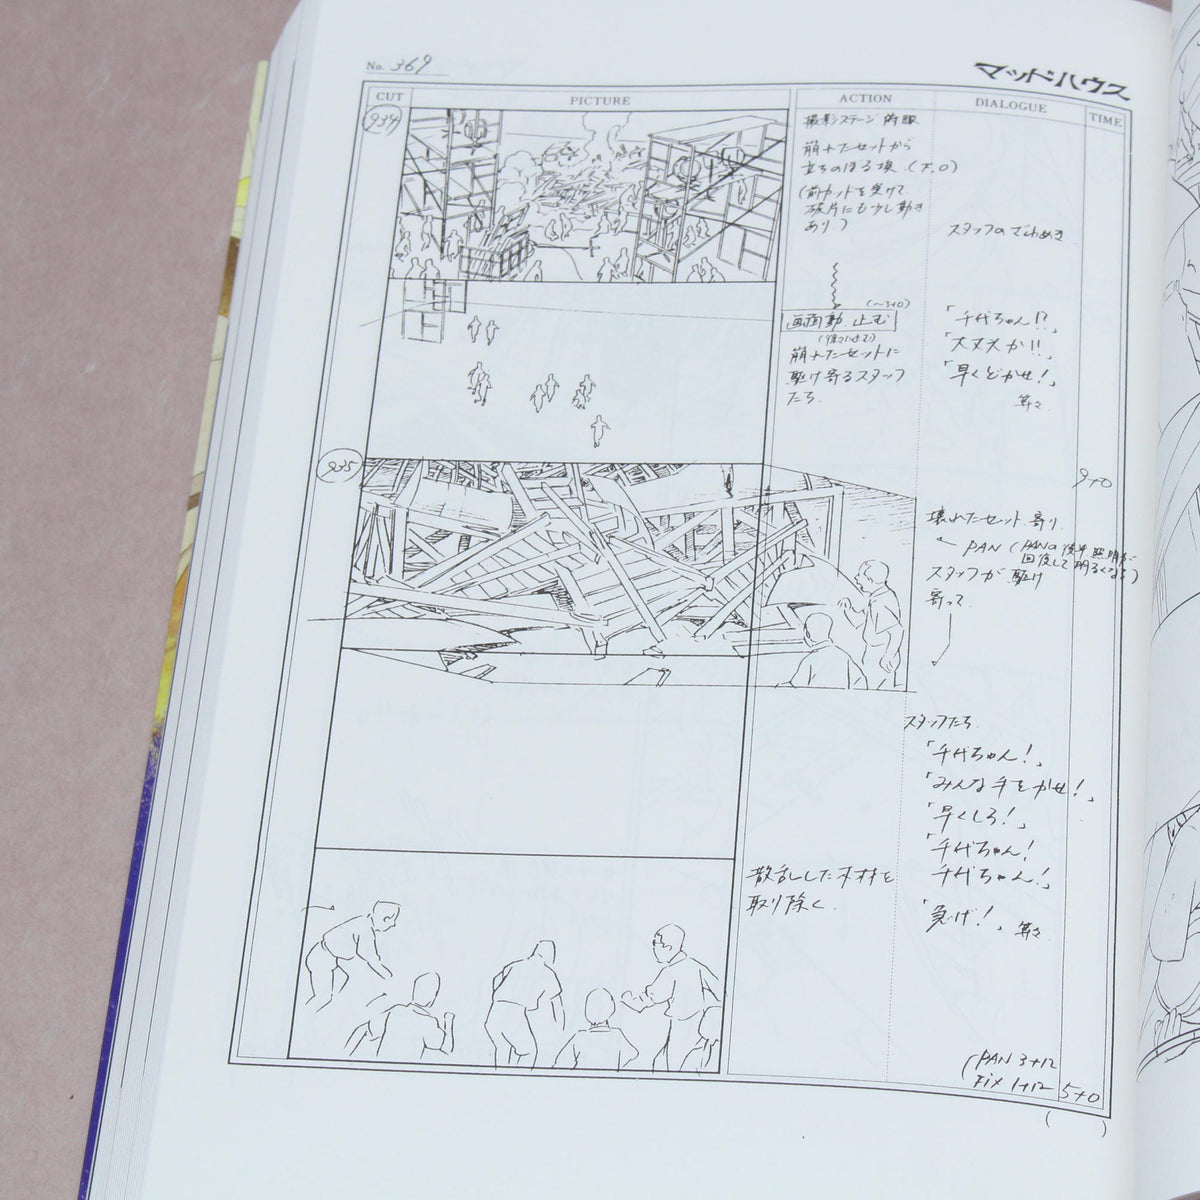 No. 369
マッドハウス
CUT
PICTURE
ACTION
DIALOGUE
TIME
934
撮影ステージ 俯瞰
崩れたセットから
立ちのぼる埃 (T.O)
(前カットを受けて
破片にも少し動き
あり)
スタッフのざわめき
(〜3+0)
画面動 止む
崩れたセットに
駆け寄るスタッフ
たち.
「千代ちゃん!?」
「大丈夫か!!」
「早くどかせ!」
等々
9+0
935
壊れたセット 寄り
PAN (PANの後半 照明が
回復して明るくなる)
スタッフが 駆け
寄って
スタッフたち
「千代ちゃん!」
「みんな手をかせ!」
「早くしろ!」
「千代ちゃん!
千代ちゃん!」
「急げ!」 等々
散乱した木材を
取り除く
(PAN 3+12
Fix 1+12
5+0
( )